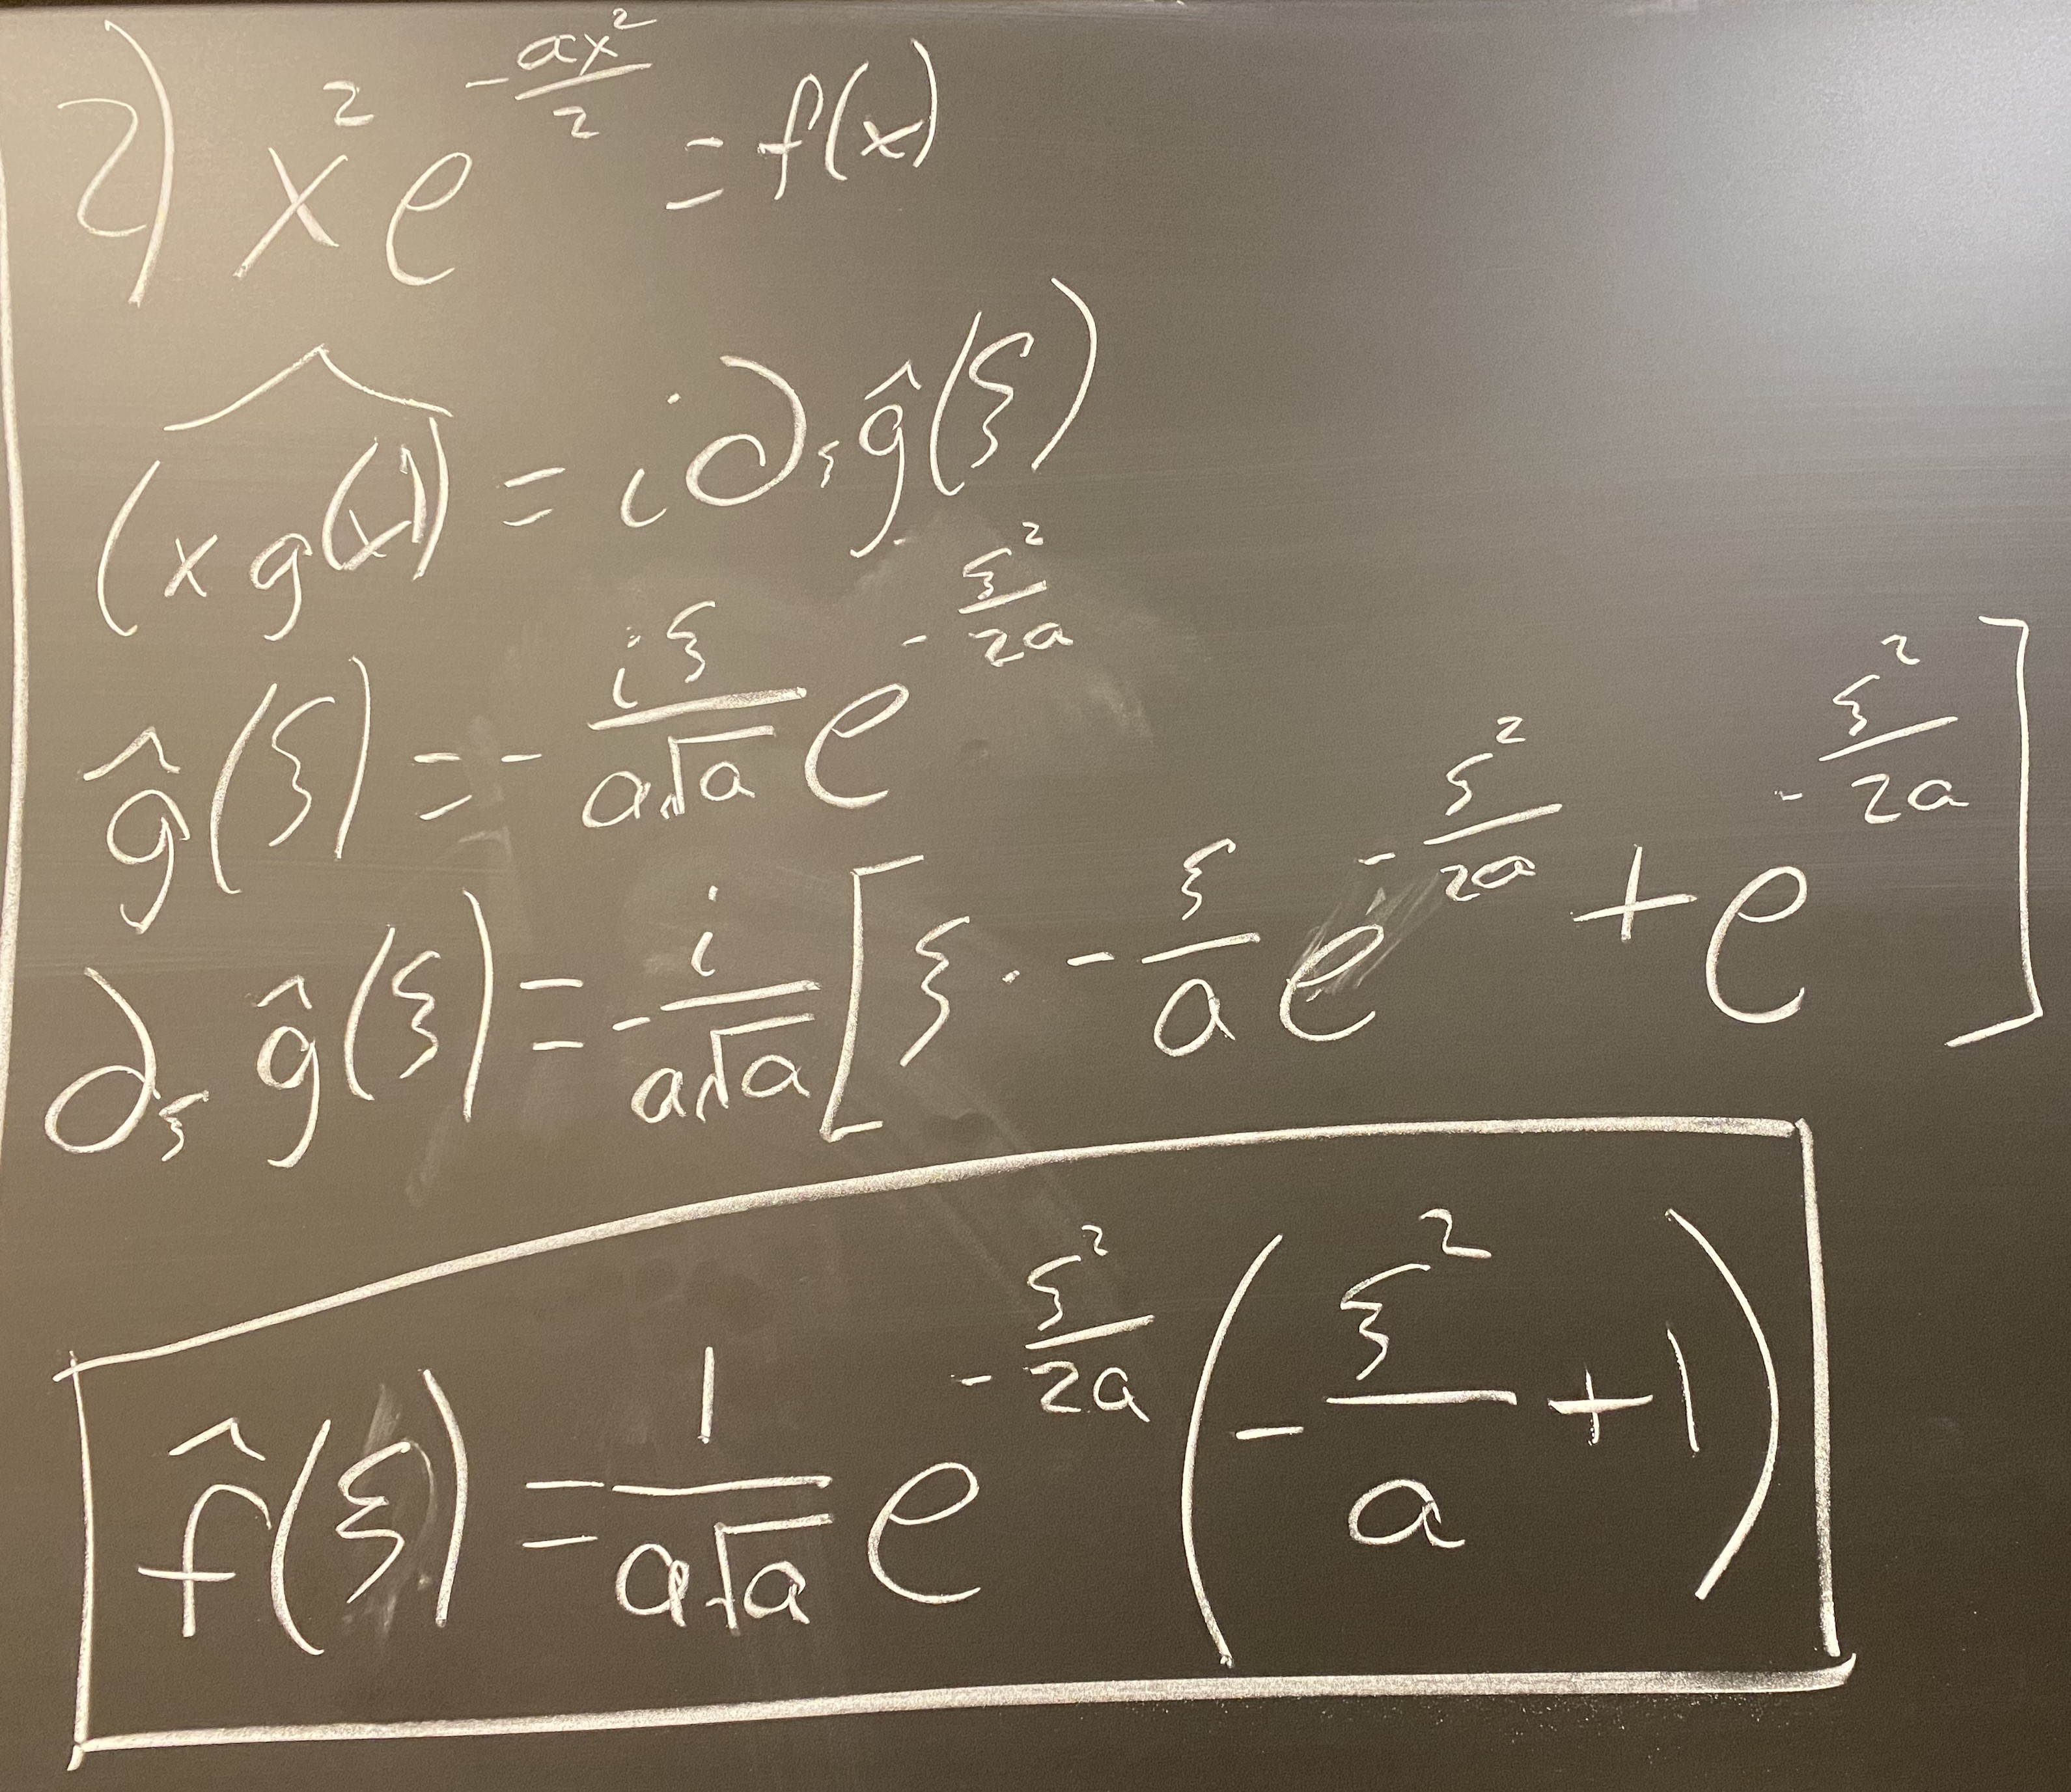 2) x² e^{-ax²/2} = f(x)
\widehat{(x g(x))} = i ∂_ξ ĝ(ξ)
ĝ(ξ) = - \frac{iξ}{a√a} e^{-ξ²/2a}
∂_ξ ĝ(ξ) = - \frac{i}{a√a} [ ξ · - \frac{ξ}{a} e^{-ξ²/2a} + e^{-ξ²/2a} ]
f̂(ξ) = \frac{1}{a√a} e^{-ξ²/2a} ( - \frac{ξ²}{a} + 1 )